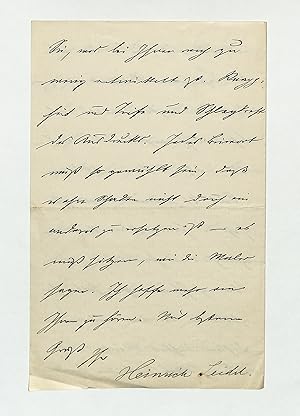 Sie, was bei Ihnen noch zu
wenig entwickelt ist. Knapp-
heit und Tiefe und Schlagkraft
des Ausdrucks. Jedes Beiwort
muß so gewählt sein, daß
es ohne Schaden nicht durch ein
anderes zu ersetzen ist — es
muß sitzen, wie die Maler
sagen. Ich hoffe mehr von
Ihnen zu hören. Mit bestem
Gruß Ihr
Heinrich Seidel.